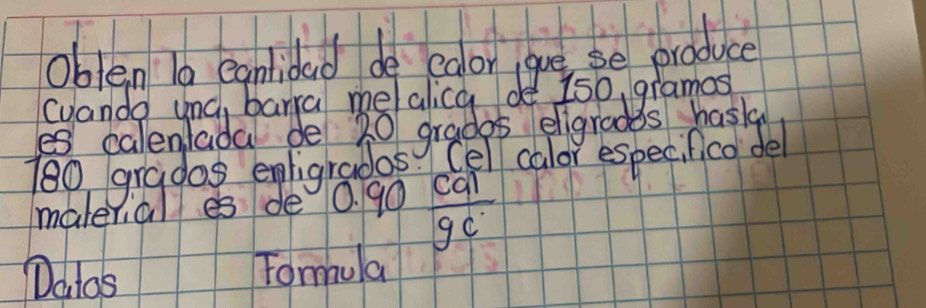 Obten la cantidad de calor, que se produce
cuando una, barra metalica de 150, gramos
es calentada de 20 grados eligrados hasta
180 grados entigrados? Cel calor especifico del
material es de 0.90 cal/gc
Datos Formula